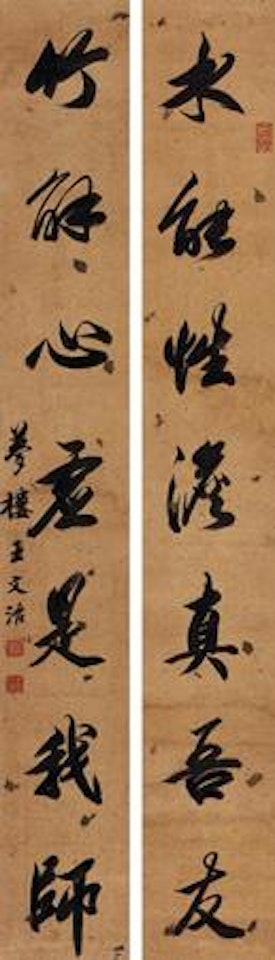 水能性澹真吾友
竹解心虚是我師
夢樓王文治